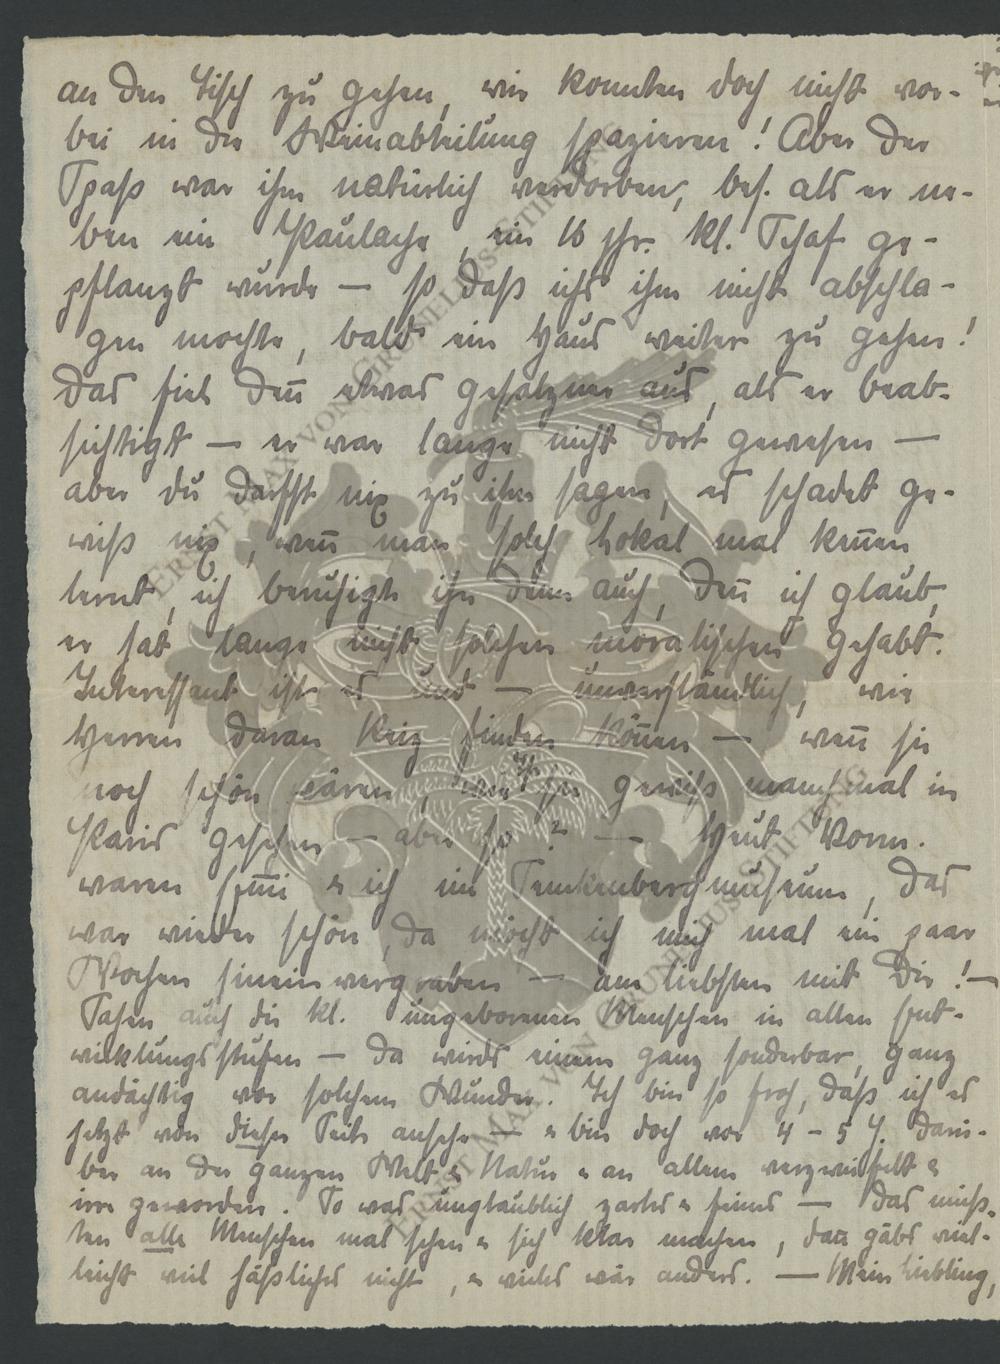 an den Tisch zu gehen, wir konnten doch nicht vor-
bei in die Weinabteilung spazieren! Aber der
Spaß war ihm natürlich verdorben, bes. als er ne-
ben ein, ein 16 jhr. kl. Schaf ge-
pflanzt wurde — so daß ichs ihm nicht abschla-
gen mochte, bald ein Haus weiter zu gehen!
Das fiel den̄ etwas gesalzner aus, als er beab-
sichtigt — er war lange nicht dort gewesen —
aber du darfst nix zu ihm sagen, es schadet ge-
wiß nix, wen̄ man solch Lokal mal ken̄en
lernt, ich beruhigte ihn denn auch, den̄ ich glaub,
er hat lange nicht solchen moralischen gehabt.
Interessant ists es und — unverständlich, wie
Herren daran Reiz finden kön̄en — wen̄ sie
noch schön wären, wie gewiß manchmal in
Paris gesehen — aber so? — Heut Vorm.
waren & ich im Senkenbergmuseum, das
war wieder schön, da möcht ich mich mal ein paar
Wochen hinein vergraben — am liebsten mit Dir! —
Sahen auch die kl. ungeborenen Menschen in allen Ent-
wicklungsstufen — da wirds einem ganz sonderbar, ganz
andächtig vor solchem Wunder. Ich bin so froh, daß ich es
jetzt von dieser Seite ansehe — & bin doch vor 4 – 5 J. darü-
ber an der ganzen Welt & Natur & an allem verzweifelt &
irre geworden. So was unglaublich zartes & feines — das müß-
ten alle Menschen mal sehen & sich klar machen, dan̄ gäbs viel-
leicht viel häßliches nicht, & vieles wär anders. — Mein Liebling,
ERNST MAX VON GRUNELIUS-STIFTUNG
ERNST MAX VON GRUNELIUS-STIFTUNG